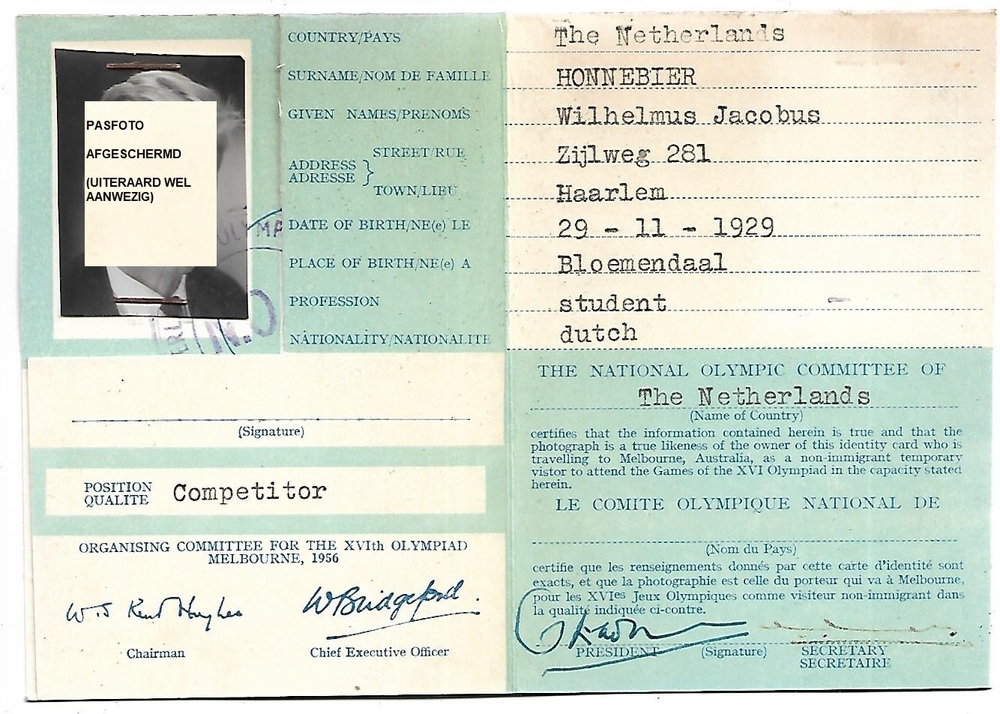 PASFOTO
AFGESCHERMD
(UITERAARD WEL
AANWEZIG)
OLYMP
N.O
COUNTRY/PAYS The Netherlands
SURNAME/NOM DE FAMILLE HONNEBIER
GIVEN NAMES/PRENOMS Wilhelmus Jacobus
ADDRESS
ADRESSE
STREET/RUE Zijlweg 281
TOWN/LIEU Haarlem
DATE OF BIRTH/NE(e) LE 29 - 11 - 1929
PLACE OF BIRTH/NE(e) A Bloemendaal
PROFESSION student
NATIONALITY/NATIONALITE dutch
(Signature)
POSITION
QUALITE
Competitor
ORGANISING COMMITTEE FOR THE XVIth OLYMPIAD
MELBOURNE, 1956
W.S Kent Hughes
WBridgeford.
Chairman
Chief Executive Officer
THE NATIONAL OLYMPIC COMMITTEE OF
The Netherlands
(Name of Country)
certifies that the information contained herein is true and that the
photograph is a true likeness of the owner of this identity card who is
travelling to Melbourne, Australia, as a non-immigrant temporary
vistor to attend the Games of the XVI Olympiad in the capacity stated
herein.
LE COMITE OLYMPIQUE NATIONAL DE
(Nom du Pays)
certifie que les renseignements donnés par cette carte d'identité sont
exacts, et que la photographie est celle du porteur qui va à Melbourne,
pour les XVIes Jeux Olympiques comme visiteur non-immigrant dans
la qualité indiquée ci-contre.
PRESIDENT (Signature) SECRETARY
SECRETAIRE